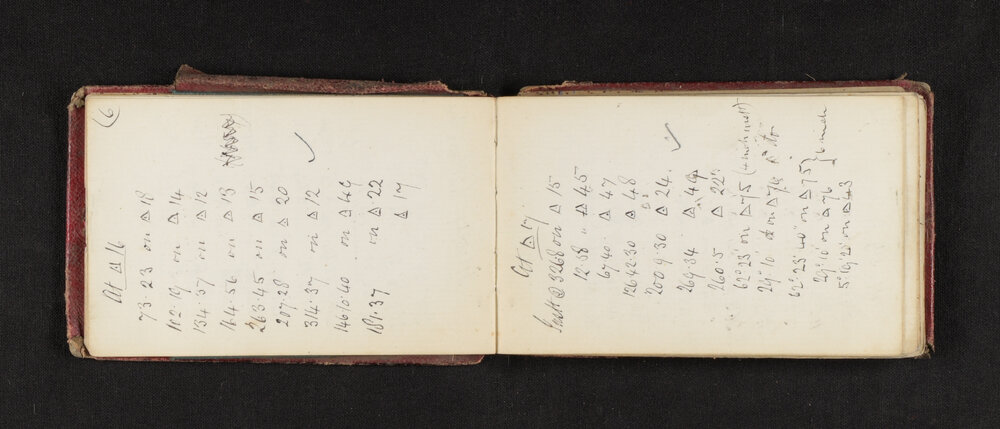 (6
At △ 16
73.23 on △ 18
112.19 on △ 14
134.37 on △ 12
164.36 on △ 13
263.45 on △ 15
207.28 on △ 20
314.37 on △ 12
146.0.40 on △ 49
181.37 on △ 22
△ 17
At △ 17
3268 on △ 15
12.38 " △ 45
67.40 △ 47
126.42.30 △ 48
200.9.30 △ 24.
269.34 △ 49
260.5 △ 22
62°23' on △ 75 (4 inch inst)
29°10 on △ 74 Do
62°23'40" on △ 75
29°10' on △ 76 } 6 inch
5°19'20" on △ 43